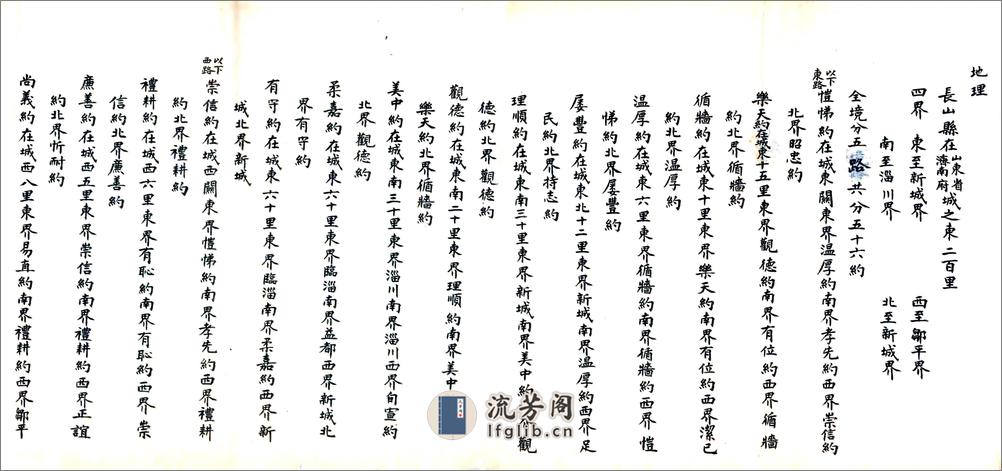 地理
長山縣在山東省濟南府城之東二百里
四界 東至新城界 西至鄒平界
南至淄川界 北至新城界
全境分五路共分五十六約
以下東路愷悌約在城東關東界溫厚約南界孝先約西界崇信約
北界昭忠約
樂天約在城東十五里東界觀德約南界有位約西界循牆
約北界循牆約
循牆約在城東十里東界樂天約南界有位約西界潔己
約北界溫厚約
溫厚約在城東六里東界循牆約南界循牆約西界愷
悌約北界屡豐約
屡豐約在城東北十二里東界新城南界溫厚約西界足
民約北界持志約
理順約在城東南三十里東界新城南界美中約觀
德約北界觀德約
觀德約在城東南二十里東界理順約南界美中
樂天約北界循牆約
美中約在城東南三十里東界淄川南界淄川西界旬宣約
北界觀德約
柔嘉約在城東六十里東界臨淄南界益都西界新城北
界有守約
有守約在城東六十里東界臨淄南界柔嘉約西界新
城北界新城
以下西路崇信約在城西關東界愷悌約南界孝先約西界禮耕
約北界禮耕約
禮耕約在城西六里東界有恥約南界有恥約西界崇
信約北界廉善約
廉善約在城西五里東界崇信約南界禮耕約西界正誼
約北界忻耐約
尚義約在城西八里東界易直約南界禮耕約西界鄒平
流芳阁
lfglib.cn